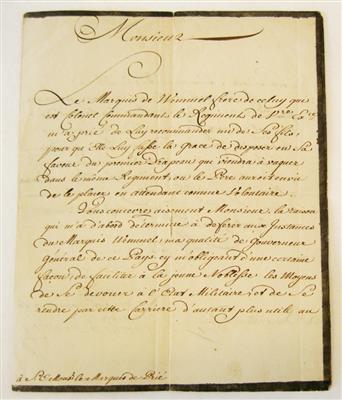 Monsieur
Le Marquis de Wemmel frere de celuy que
est Colonel Commandant le Regiment de
m'a prié de Luy recommander un de Ses fils,
pour qu'Elle luy fasse la grace de disposer en Sa
faveur du premier Drapeau que viendra à vaquer
dans le même Regiment, ou le Pere auroit envie
de le placer en attendant comme Volontaire.
Vous concevez aisement Monsieur la raison
qui m'a d'abord determiné a deferer aux Instances
du Marquis Wemmel, ma qualité de Gouverneur
General de ce Pays cy m'obligeant d'une certaine
façon, de faciliter à la jeune Noblesse les Moyens
de Se devouer à l'Etat Militaire, et de Se
rendre par cette Carriere d'autant plus utile au
à Mons. le Marquis de Prié